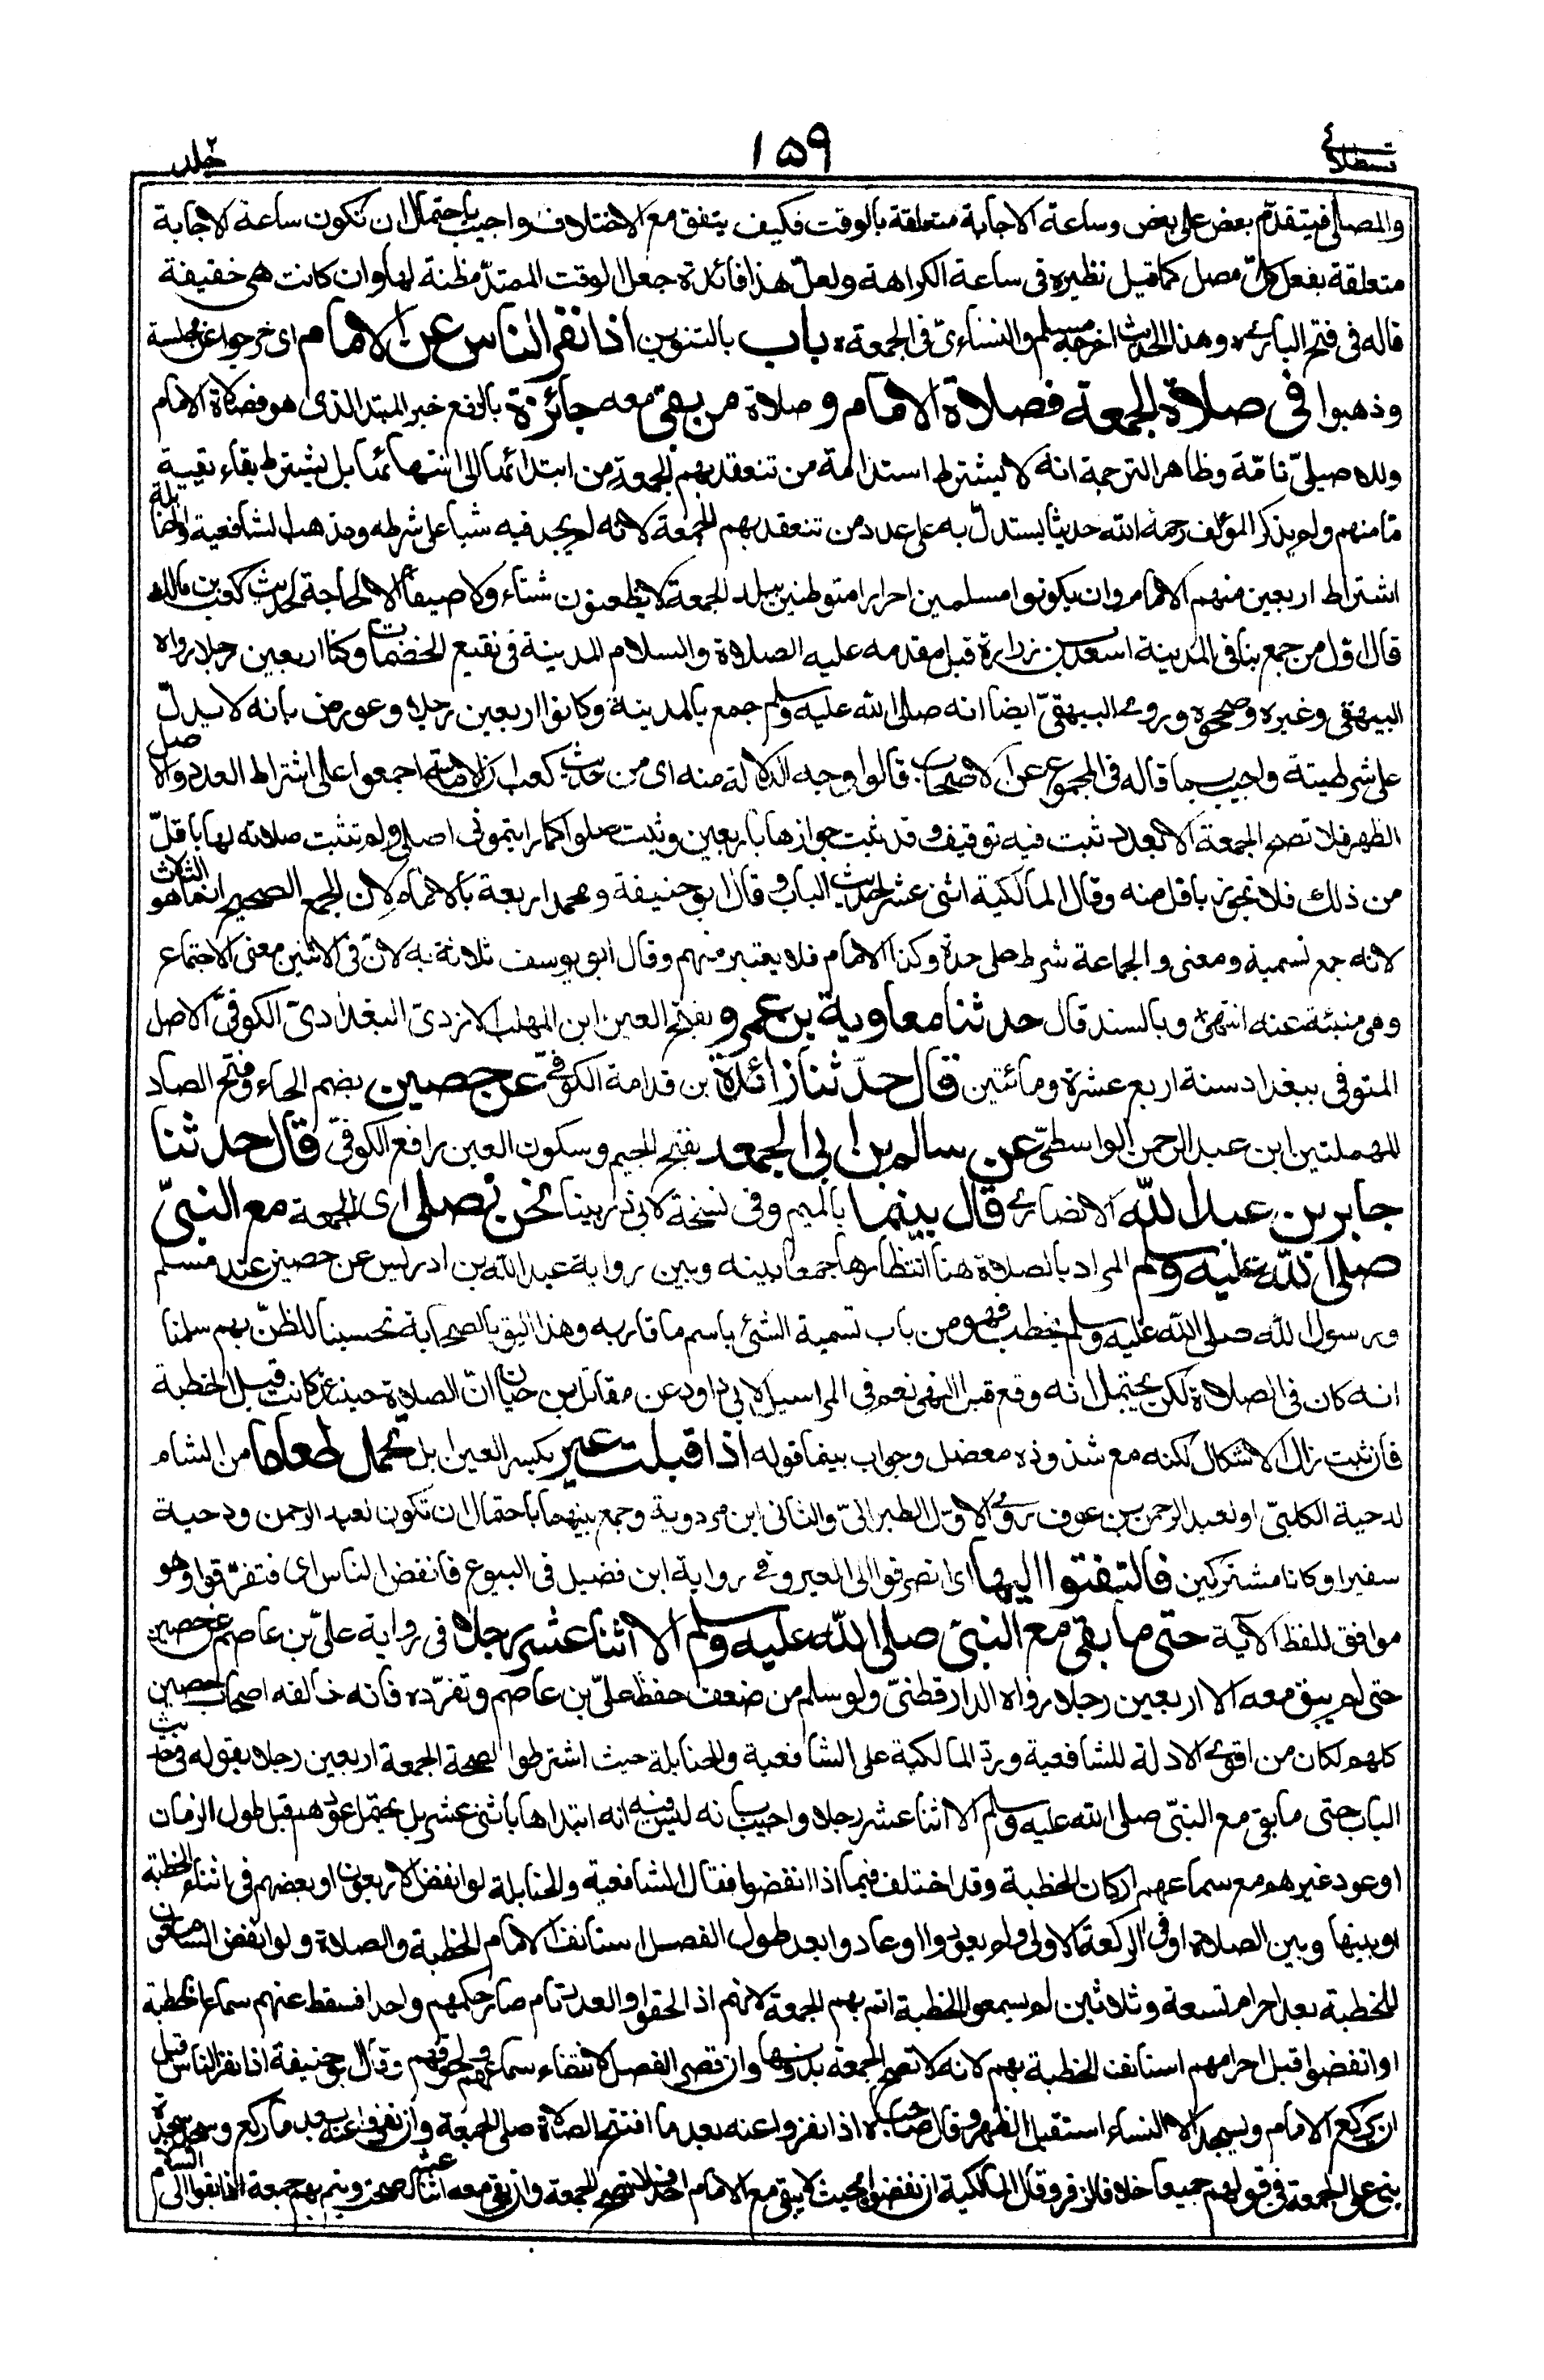 قسطلانی ١٥٩ جلد٢
والمصلي فيتقدم بعض على بعض وساعة الاجابة متعلقة بالوقت فكيف يتفق مع الاختلاف واجيب باحتمال ان تكون ساعة الاجابة
متعلقة بفعل كل مصل كما قيل نظيره فى ساعة الكراهة ولعل هذا فائدة جعل الوقت الممتد مظنة لها وان كانت هى خفيفة
قاله فى فتح البارى وهذا الحديث اخرجه مسلم والنساءى فى الجمعة باب بالتنوين اذا نفر الناس عن الامام اى خرجوا عن مجلسه
وذهبوا فى صلاة الجمعة فصلاة الامام و صلاة من بقى معه جائزة بالرفع خبر المبتدا الذى هو فصلاة الامام
وللاصيلى تامة وظاهر الترجمة انه لا يشترط استدامة من تنعقد بهم الجمعة من ابتدائها الى انتهائها بل يشترط بقاء بقية
ما منهم ولم يذكر المؤلف رحمه الله حديثا يستدل به على عدد من تنعقد بهم الجمعة لانه لم يجد فيه شيا على شرطه ومذهب الشافعية والحنابلة
اشتراط اربعين منهم الامام وان يكونوا مسلمين احرارا متوطنين ببلد الجمعة لا يظعنون شتاء ولا صيفا الا لحاجة لحديث كعب بن مالك
قال اول من جمع بنا فى المدينة اسعد بن زرارة قبل مقدمه عليه الصلاة والسلام المدينة فى نقيع الخضمات وكنا اربعين رجلا رواه
البيهقى وغيره وصححوه وروى البيهقى ايضا انه صلى الله عليه وسلم جمع بالمدينة وكانوا اربعين رجلا وعورض بانه لا يدل
على شرطيته واجيب بما قاله فى المجموع عن الاصحاب قالوا وجه الدلالة منه اى من حديث كعب ان الامة اجمعوا على اشتراط العدد والاصل
الظهر فلا تصح الجمعة الا بعدد ثبت فيه توقيف وقد ثبت جوازها باربعين وثبت صلوا كما رايتمونى اصلى ولم تثبت صلاته لها باقل
من ذلك فلا تجوز باقل منه وقال المالكية اثنى عشر لحديث الباب وقال ابو حنيفة ومحمد اربعة بالامام لان الجمع الصحيح انما هو الثلاث
لانه جمع تسمية ومعنى والجماعة شرط على حدة وكذا الامام فلا يعتبر منهم وقال ابو يوسف ثلاثة به لان فى الاثنين معنى الاجتماع
وهى منبئة عنه انتهى وبالسند قال حدثنا معاوية بن عمرو بفتح العين ابن المهلب الازدى البغدادى الكوفى الاصل
المتوفى ببغداد سنة اربع عشرة ومائتين قال حدثنا زائدة بن قدامة الكوفى عن حصين بضم الحاء وفتح الصاد
المهملتين ابن عبد الرحمن الواسطى عن سالم بن ابى الجعد بفتح الجيم وسكون العين رافع الكوفى قال حدثنا
جابر بن عبد الله الانصارى قال بينما بالميم وفى نسخة لابى ذر بينا نحن نصلى اى الجمعة مع النبى
صلى الله عليه وسلم المراد بالصلاة هنا انتظارها جمعا بينه وبين رواية عبد الله بن ادريس عن حصين عند مسلم
ورسول الله صلى الله عليه وسلم يخطب فهو من باب تسمية الشئ باسم ما قاربه وهذا اليق بالصحابة تحسينا للظن بهم سلمنا
انه كان فى الصلاة لكن يحتمل انه وقع قبل النهى نعم فى المراسيل لابى داود عن مقاتل بن حيان ان الصلاة حينئذ كانت قبل الخطبة
فان ثبت زال الاشكال لكنه مع شذوذه معضل وجواب بينما قوله اذ اقبلت عير بكسر العين ابل تحمل طعاما من الشام
لدحية الكلبى او لعبد الرحمن بن عوف روى الاول الطبرانى والثانى ابن مردوية وجمع بينهما باحتمال ان تكون لعبد الرحمن ودحية
سفيرا وكانا مشتركين فالتفتوا اليها اى انصرفوا الى العير وفى رواية ابن فضيل فى البيوع فانفض الناس اى فتفرقوا وهو
موافق للفظ الآية حتى ما بقى مع النبى صلى الله عليه وسلم الا اثنا عشر رجلا فى رواية على بن عاصم عن حصين
حتى لم يبق معه الا اربعين رجلا رواه الدارقطنى ولو سلم من ضعف حفظ على بن عاصم وتفرده فانه خالفه اصحاب حصين
كلهم لكان من اقوى الادلة للشافعية ورد المالكية على الشافعية والحنابلة حيث اشترطوا لصحة الجمعة اربعين رجلا بقوله فى حديث
الباب حتى ما بقى مع النبى صلى الله عليه وسلم الا اثنا عشر رجلا واجيب بانه ليس فيه انه ابتداها باثنى عشر بل يحتمل عودهم قبل طول الزمان
او عود غيرهم مع سماعهم اركان الخطبة وقد اختلف فيما اذا انفضوا فقال الشافعية والحنابلة لو انفض الاربعون او بعضهم فى اثناء الخطبة
او بينها وبين الصلاة او فى الركعة الاولى ولم يعودوا او عادوا بعد طول الفصل استانف الامام الخطبة والصلاة ولو انفض السامعون
للخطبة بعد احرام تسعة وثلاثين لم يسمعوا الخطبة اتم بهم الجمعة لانهم اذا لحقوا والعدد تام صار حكمهم واحدا فسقط عنهم سماع الخطبة
او انفضوا قبل احرامهم استانف الخطبة بهم لانه لا تصح الجمعة بدونها وان قصر الفصل لانتفاء سماعهم ولحوقهم وقال ابو حنيفة اذا نفر الناس قبل
ان يركع الامام ويسجد الا النساء استقبل الظهر وقال صاحباه اذا نفروا عنه بعد ما افتتح الصلاة صلى الجمعة وان نفروا عنه بعد ما ركع وسجد سجدة
بنى على الجمعة فى قولهم جميعا خلافا لزفر وقال المالكية ان انفضوا بحيث لا يبقى مع الامام احد فلا تصح الجمعة وان بقى معه اثنا عشر صحت ويتم بهم جمعة اذا بقوا الى السلام